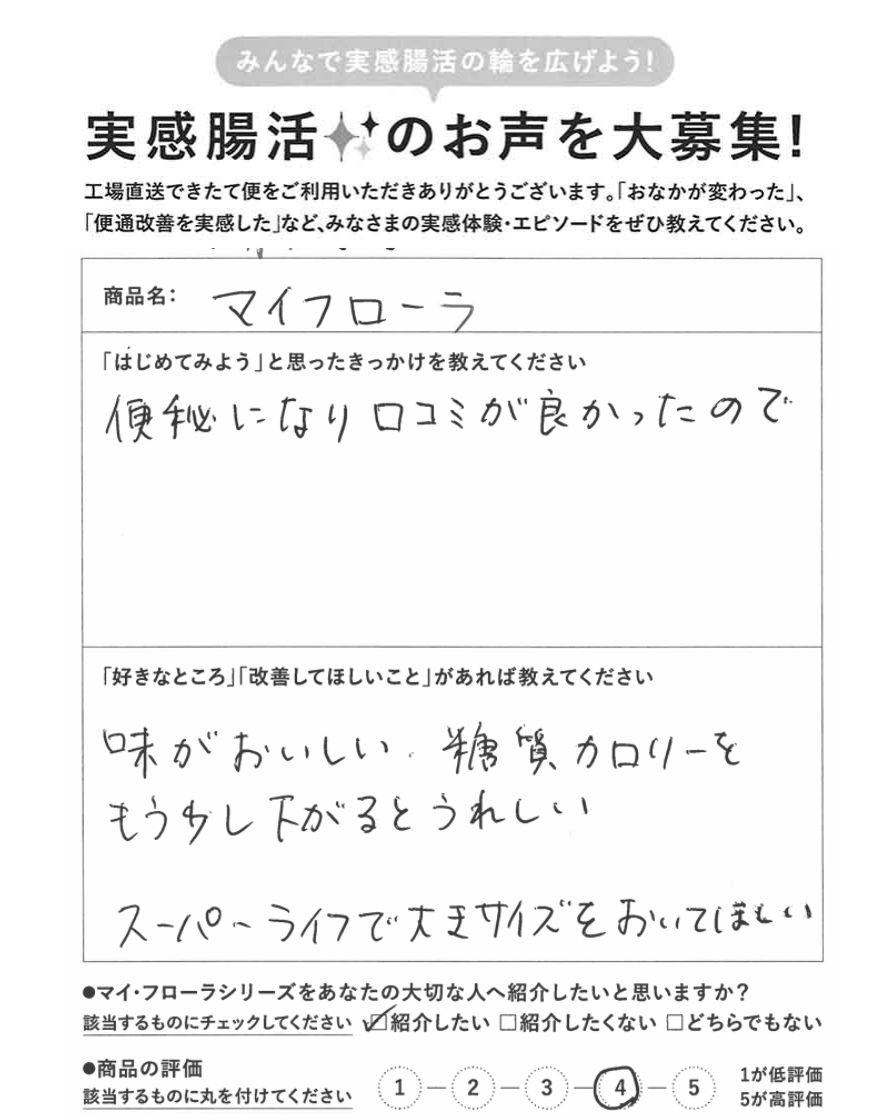 みんなで実感腸活の輪を広げよう!
実感腸活のお声を大募集!
工場直送できたて便をご利用いただきありがとうございます。「おなかが変わった」、
「便通改善を実感した」など、みなさまの実感体験・エピソードをぜひ教えてください。
商品名: マイフローラ
「はじめてみよう」と思ったきっかけを教えてください
便秘になり口コミが良かったので
「好きなところ」「改善してほしいこと」があれば教えてください
味がおいしい. 糖質カロリーを
もう少し下がるとうれしい
スーパーライフで大きサイズをおいてほしい
●マイ・フローラシリーズをあなたの大切な人へ紹介したいと思いますか?
該当するものにチェックしてください ☑紹介したい □紹介したくない □どちらでもない
●商品の評価
該当するものに丸を付けてください 1 — 2 — 3 — 4 — 5
1が低評価
5が高評価